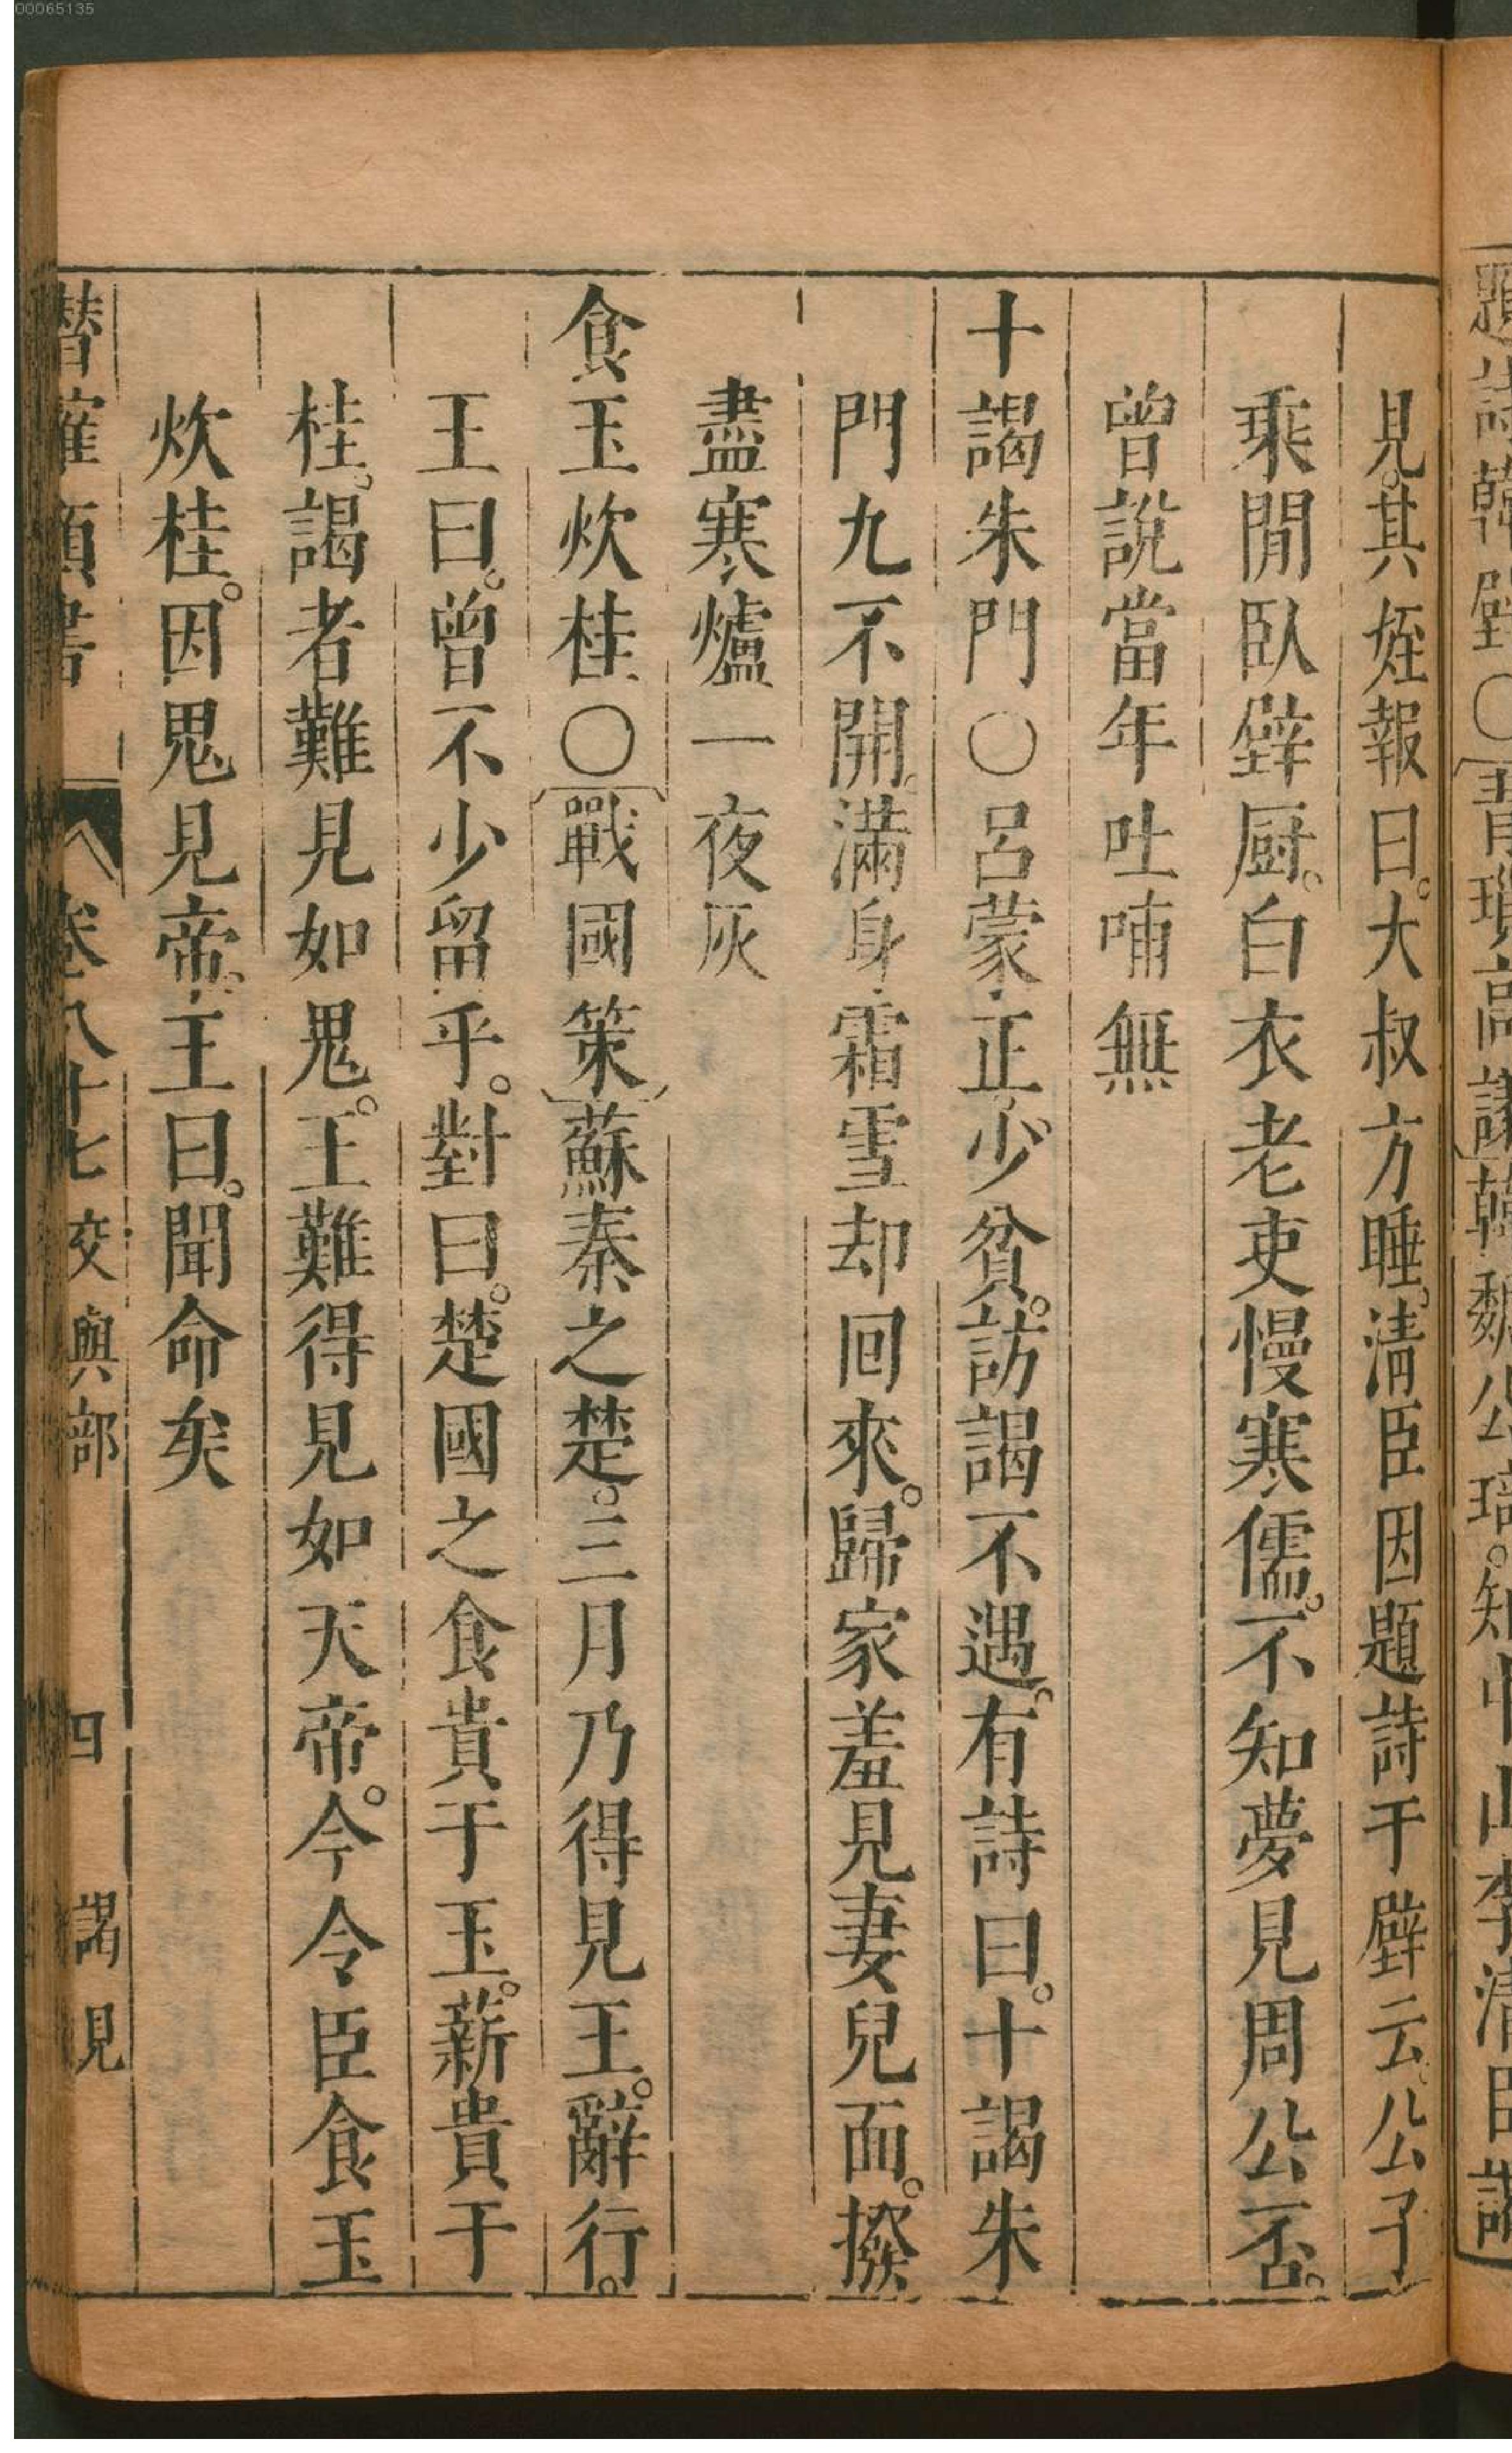 00065135
題詩韓壁〇青瑣高議韓魏公琦。知中山李清臣謁
見。其姪報曰。大叔方睡。清臣因題詩于壁云。公子
乘閒臥碧厨。白衣老吏慢寒儒。不知夢見周公否。
曾說當年吐哺無
十謁朱門〇呂蒙正少貧。訪謁不遇。有詩曰。十謁朱
門九不開。滿身霜雪却回來。歸家羞見妻兒面。撥
盡寒爐一夜灰
食玉炊桂〇戰國策蘇秦之楚。三月乃得見王。辭行。
王曰。曾不少留乎。對曰。楚國之食貴于玉。薪貴于
桂。謁者難見如鬼。王難得見如天帝。今令臣食玉
炊桂。因鬼見帝。王曰。聞命矣
潛確類書 卷八十七 交與部 四 謁見